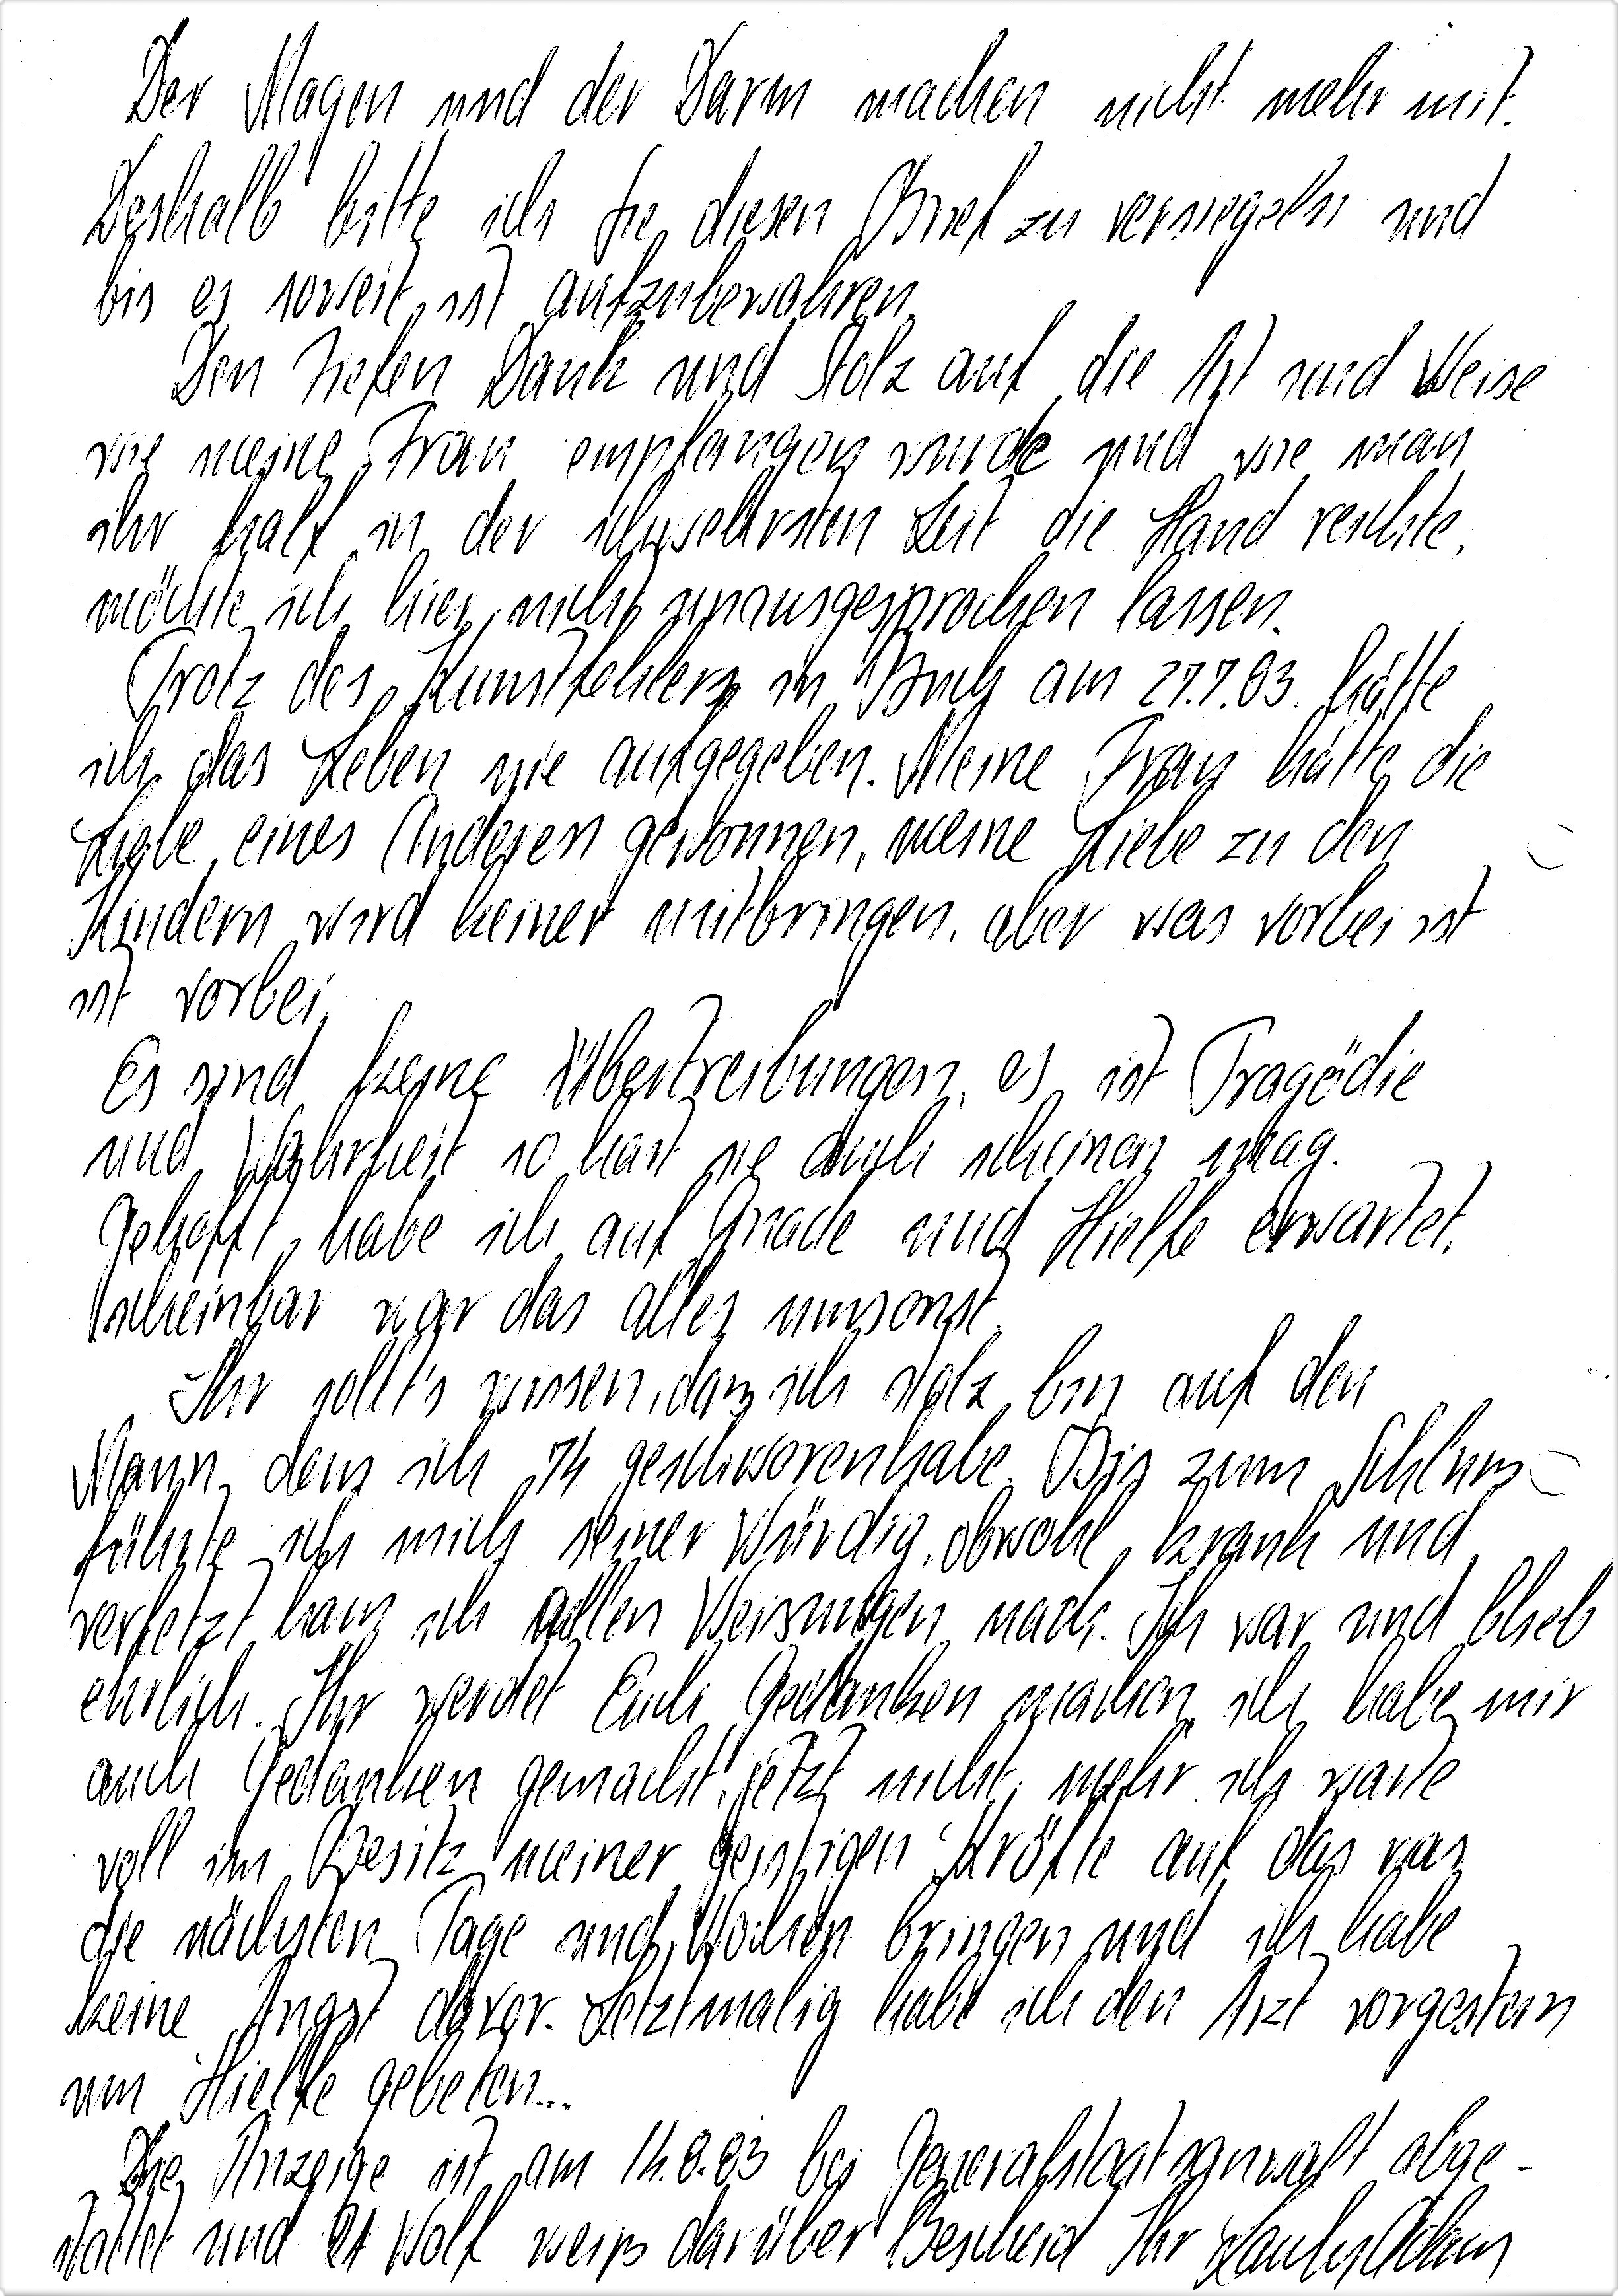 Der Magen und der Darm machen nicht mehr mit.
Deshalb bitte ich Sie diesen Brief zu versiegeln und
bis es soweit ist aufzubewahren.
Den tiefen Dank und Stolz auf die Art und Weise
wie meine Frau empfangen wurde und wie man
ihr half in der schwehrsten Zeit die Hand reichte,
möchte ich hier nicht unausgesprochen lassen.
Trotz des Kunstfehlers in Buch am 27.7.83. hätte
ich das Leben nie aufgegeben. Meine Frau hätte die
Liebe eines Anderen gewonnen, meine Liebe zu den
Kindern wird keiner mitbringen, aber was vorbei ist
ist vorbei.
Es sind keine Übertreibungen, es ist Tragödie
und Wahrheit so hart sie auch scheinen mag.
Gehofft habe ich auf Gnade und Hielfe erwartet,
scheinbar war das alles umsonst.
Ihr sollt's wissen, das ich stolz bin auf den
Mann, dem ich 74 geschworenhabe. Bis zum Schluss
fühlte ich mich seiner Würdig, obwohl krank und
verletzt kam ich allen Weisungen nach. Ich war und blieb
ehrlich. Ihr werdet Euch Gedanken machen, ich habe mir
auch Gedanken gemacht, jetzt nicht mehr ich warte
voll im Besitz meiner geistigen Kräfte auf das was
die nächsten Tage und Wochen bringen und ich habe
keine Angst davor. Letztmalig habe ich den Arzt vorgestern
um Hielfe gebeten...
Die Anzeige ist am 14.8.83 bei Generalstaatsanwalt abge-
stattet und Wolf weiß darüber Bescheid Ihr